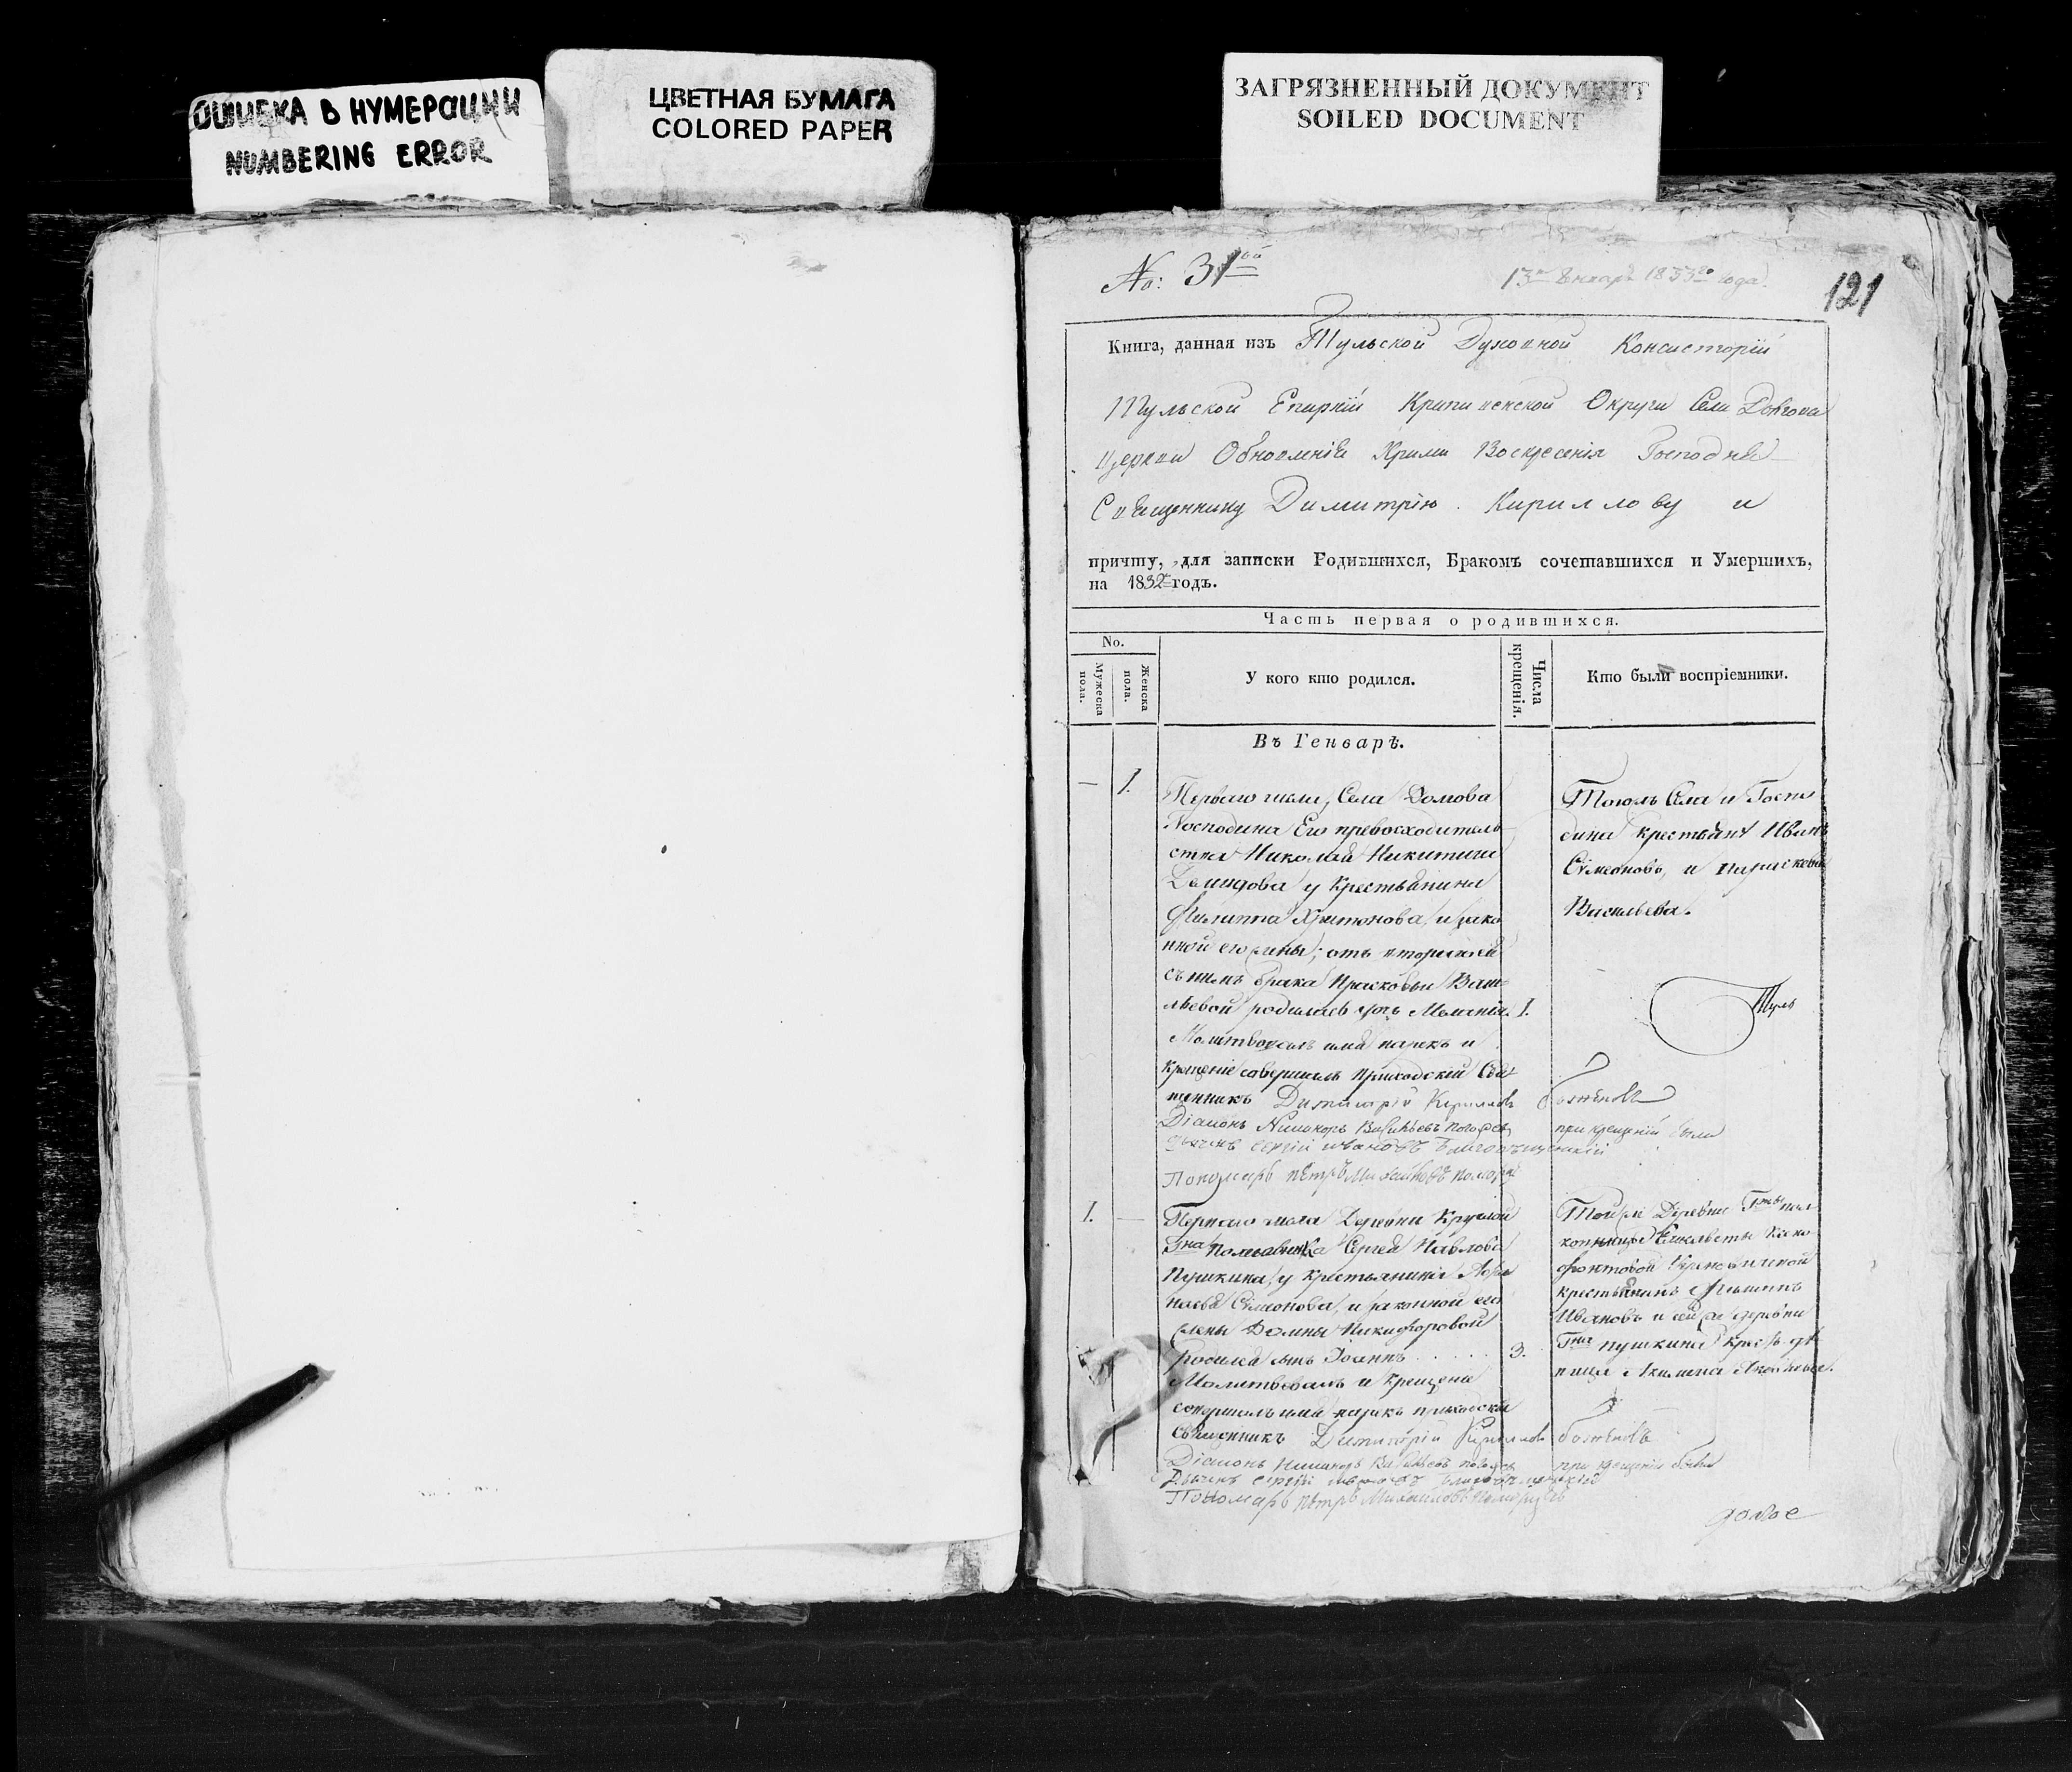 ОШИБКА В НУМЕРАЦИИ
NUMBERING ERROR
ЦВЕТНАЯ БУМАГА
COLORED PAPER
ЗАГРЯЗНЕННЫЙ ДОКУМЕНТ
SOILED DOCUMENT
No: 31
13 Генваря 1833го года.
121
Книга, данная изъ Тульской Духовной Консисторіи
Тульской Епархіи Крапивенской Округи Села Долгова
Церкви Обновленія Храма Воскресенія Господня
Священнику Димитрію Кириллову и
причту, для записки Родившихся, Бракомъ сочетавшихся и Умершихъ,
на 1832 годъ.
Часть первая о родившихся.
No.
Мужеска пола.
Женска пола.
У кого кто родился.
Числа крещенія.
Кто были воспріемники.
Въ Генварѣ.
— 1.
Перваго числа, Села Долгова
Господина Его превосходитель
ства Николая Никитича
Демидова у крестьянина
Филиппа Харитонова, и зако
нной его жены; отъ втораго ей
съ нимъ брака Прасковьи Васи
льевой родилась дочь Меланія. 1.
Молитвовалъ имя нарекъ и
крещеніе совершилъ Приходскій Свя
щенникъ Димитрій Кирилловъ
Діаконъ Никаноръ Васильевъ
при крещеніи были
Дьячекъ Сергій Ивановъ Благовѣщенскій
Пономарь Петръ Михайловъ
Тогожъ Села и Госпо
дина крестьянъ Иванъ
Симеоновъ, и Параскева
Васильева.
Туль
1. —
Перваго числа Деревни Круглой
Гна Полковника Сергея Павлова
Пушкина, у крестьянина Афа
насья Симеонова, и законной его
жены Домны Никифоровой
родился сынъ Іосифъ 3.
Молитвовалъ и крещеніе
совершилъ имя нарекъ приходскій
священникъ Димитрій Кирилловъ
Діаконъ Никаноръ Васильевъ
при крещеніи были
Дьячекъ Сергій Ивановъ Благовѣщенскій
Пономарь Петръ Михайловъ
Той же Деревни Гжи пол
ковницы Елисаветы Ксено
фонтовой
крестьянинъ Филиппъ
Ивановъ и сей же деревни
Гна Пушкина крест. дѣ
вица Акилина